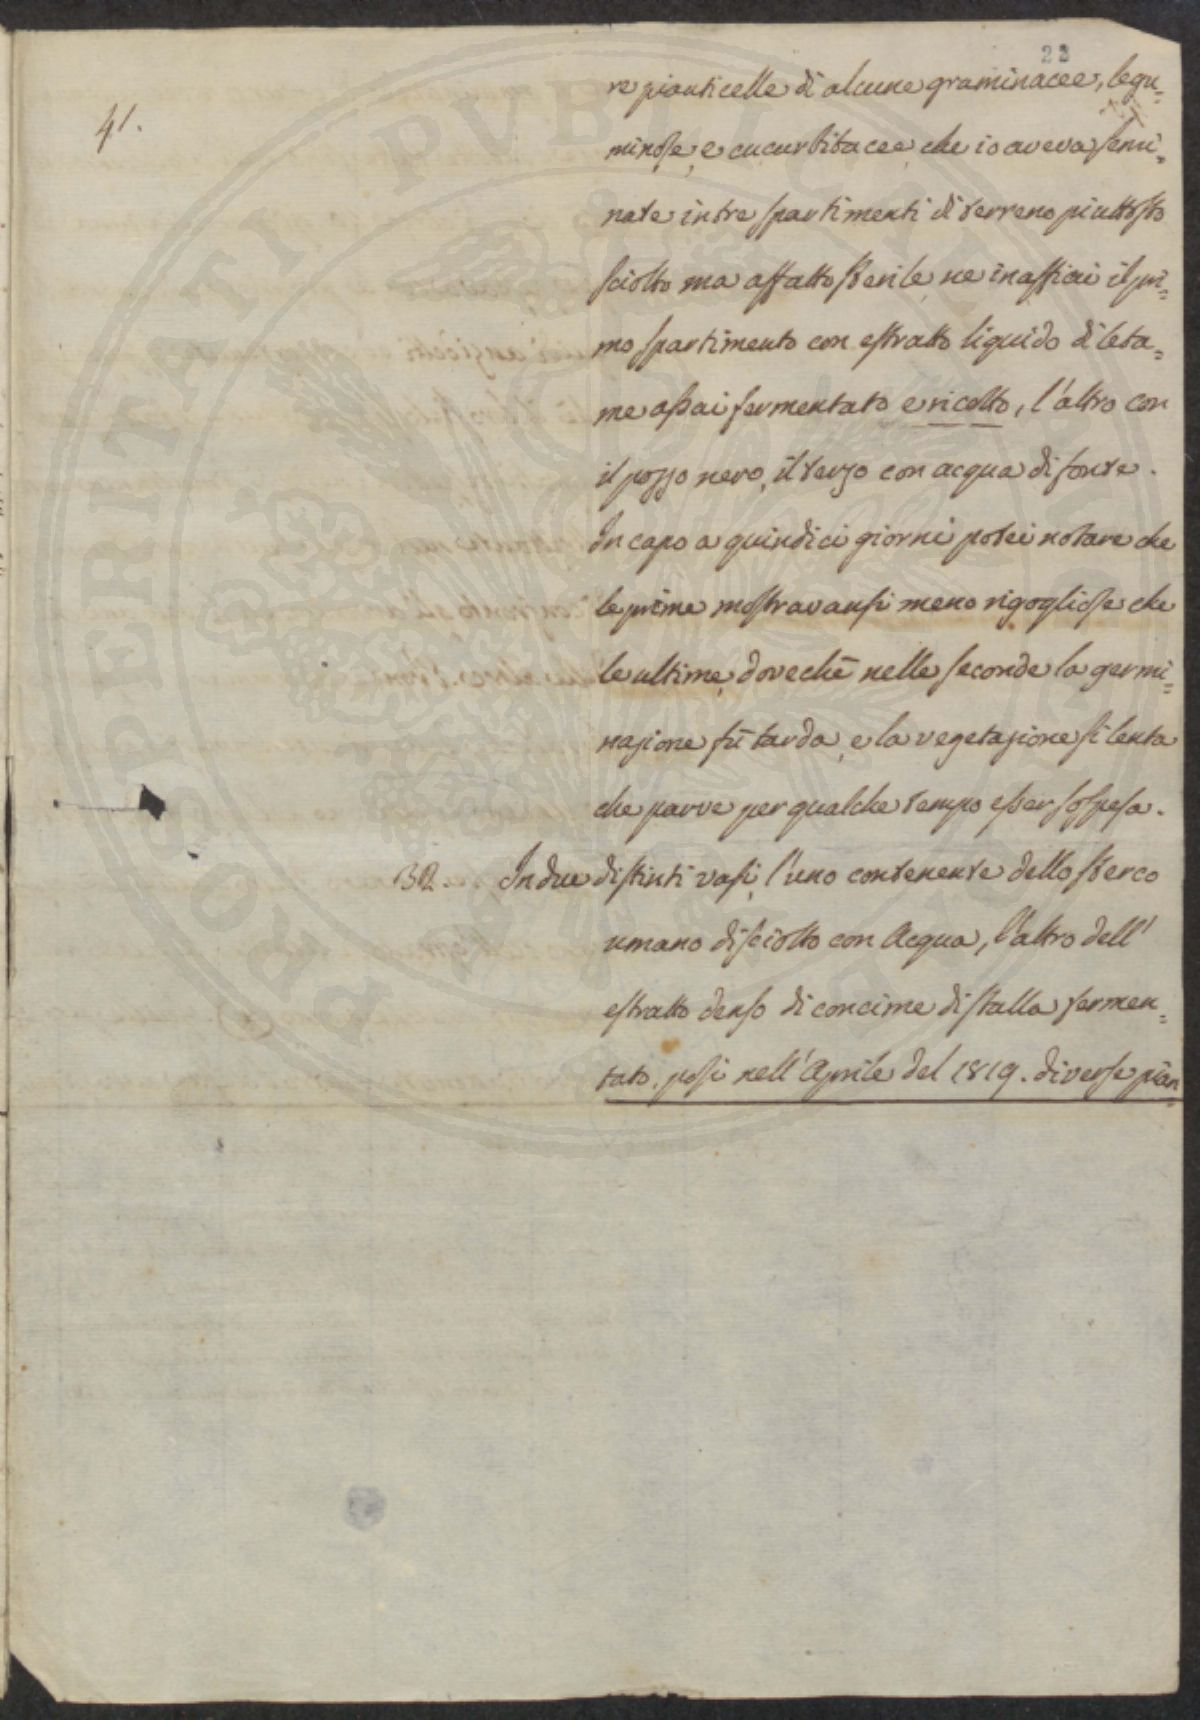 23
41.
re pianticelle di alcune graminacee, legu=
minose, e cucurbitacee, che io aveva semi=
nate in tre spartimenti di terreno piuttosto
sciolto ma affatto sterile, ne inaffiai il pri=
mo spartimento con estratto liquido di leta=
me assai fermentato e ricotto, l'altro con
il pozzo nero, il terzo con acqua di fonte.
In capo a quindici giorni potei notare che
le prime mostravansi meno rigogliose che
le ultime, dovechè nelle seconde la germi=
nazione fù tarda, e la vegetazione sì lenta
che parve per qualche tempo esser sospesa.
32. In due distinti vasi, l'uno contenente dello sterco
umano disciolto con Acqua, l'altro dell'
estratto denso di concime di stalla fermen=
tato, posi nell'Aprile del 1819. diverse pian=
PROSPERITATI PUBLICAE